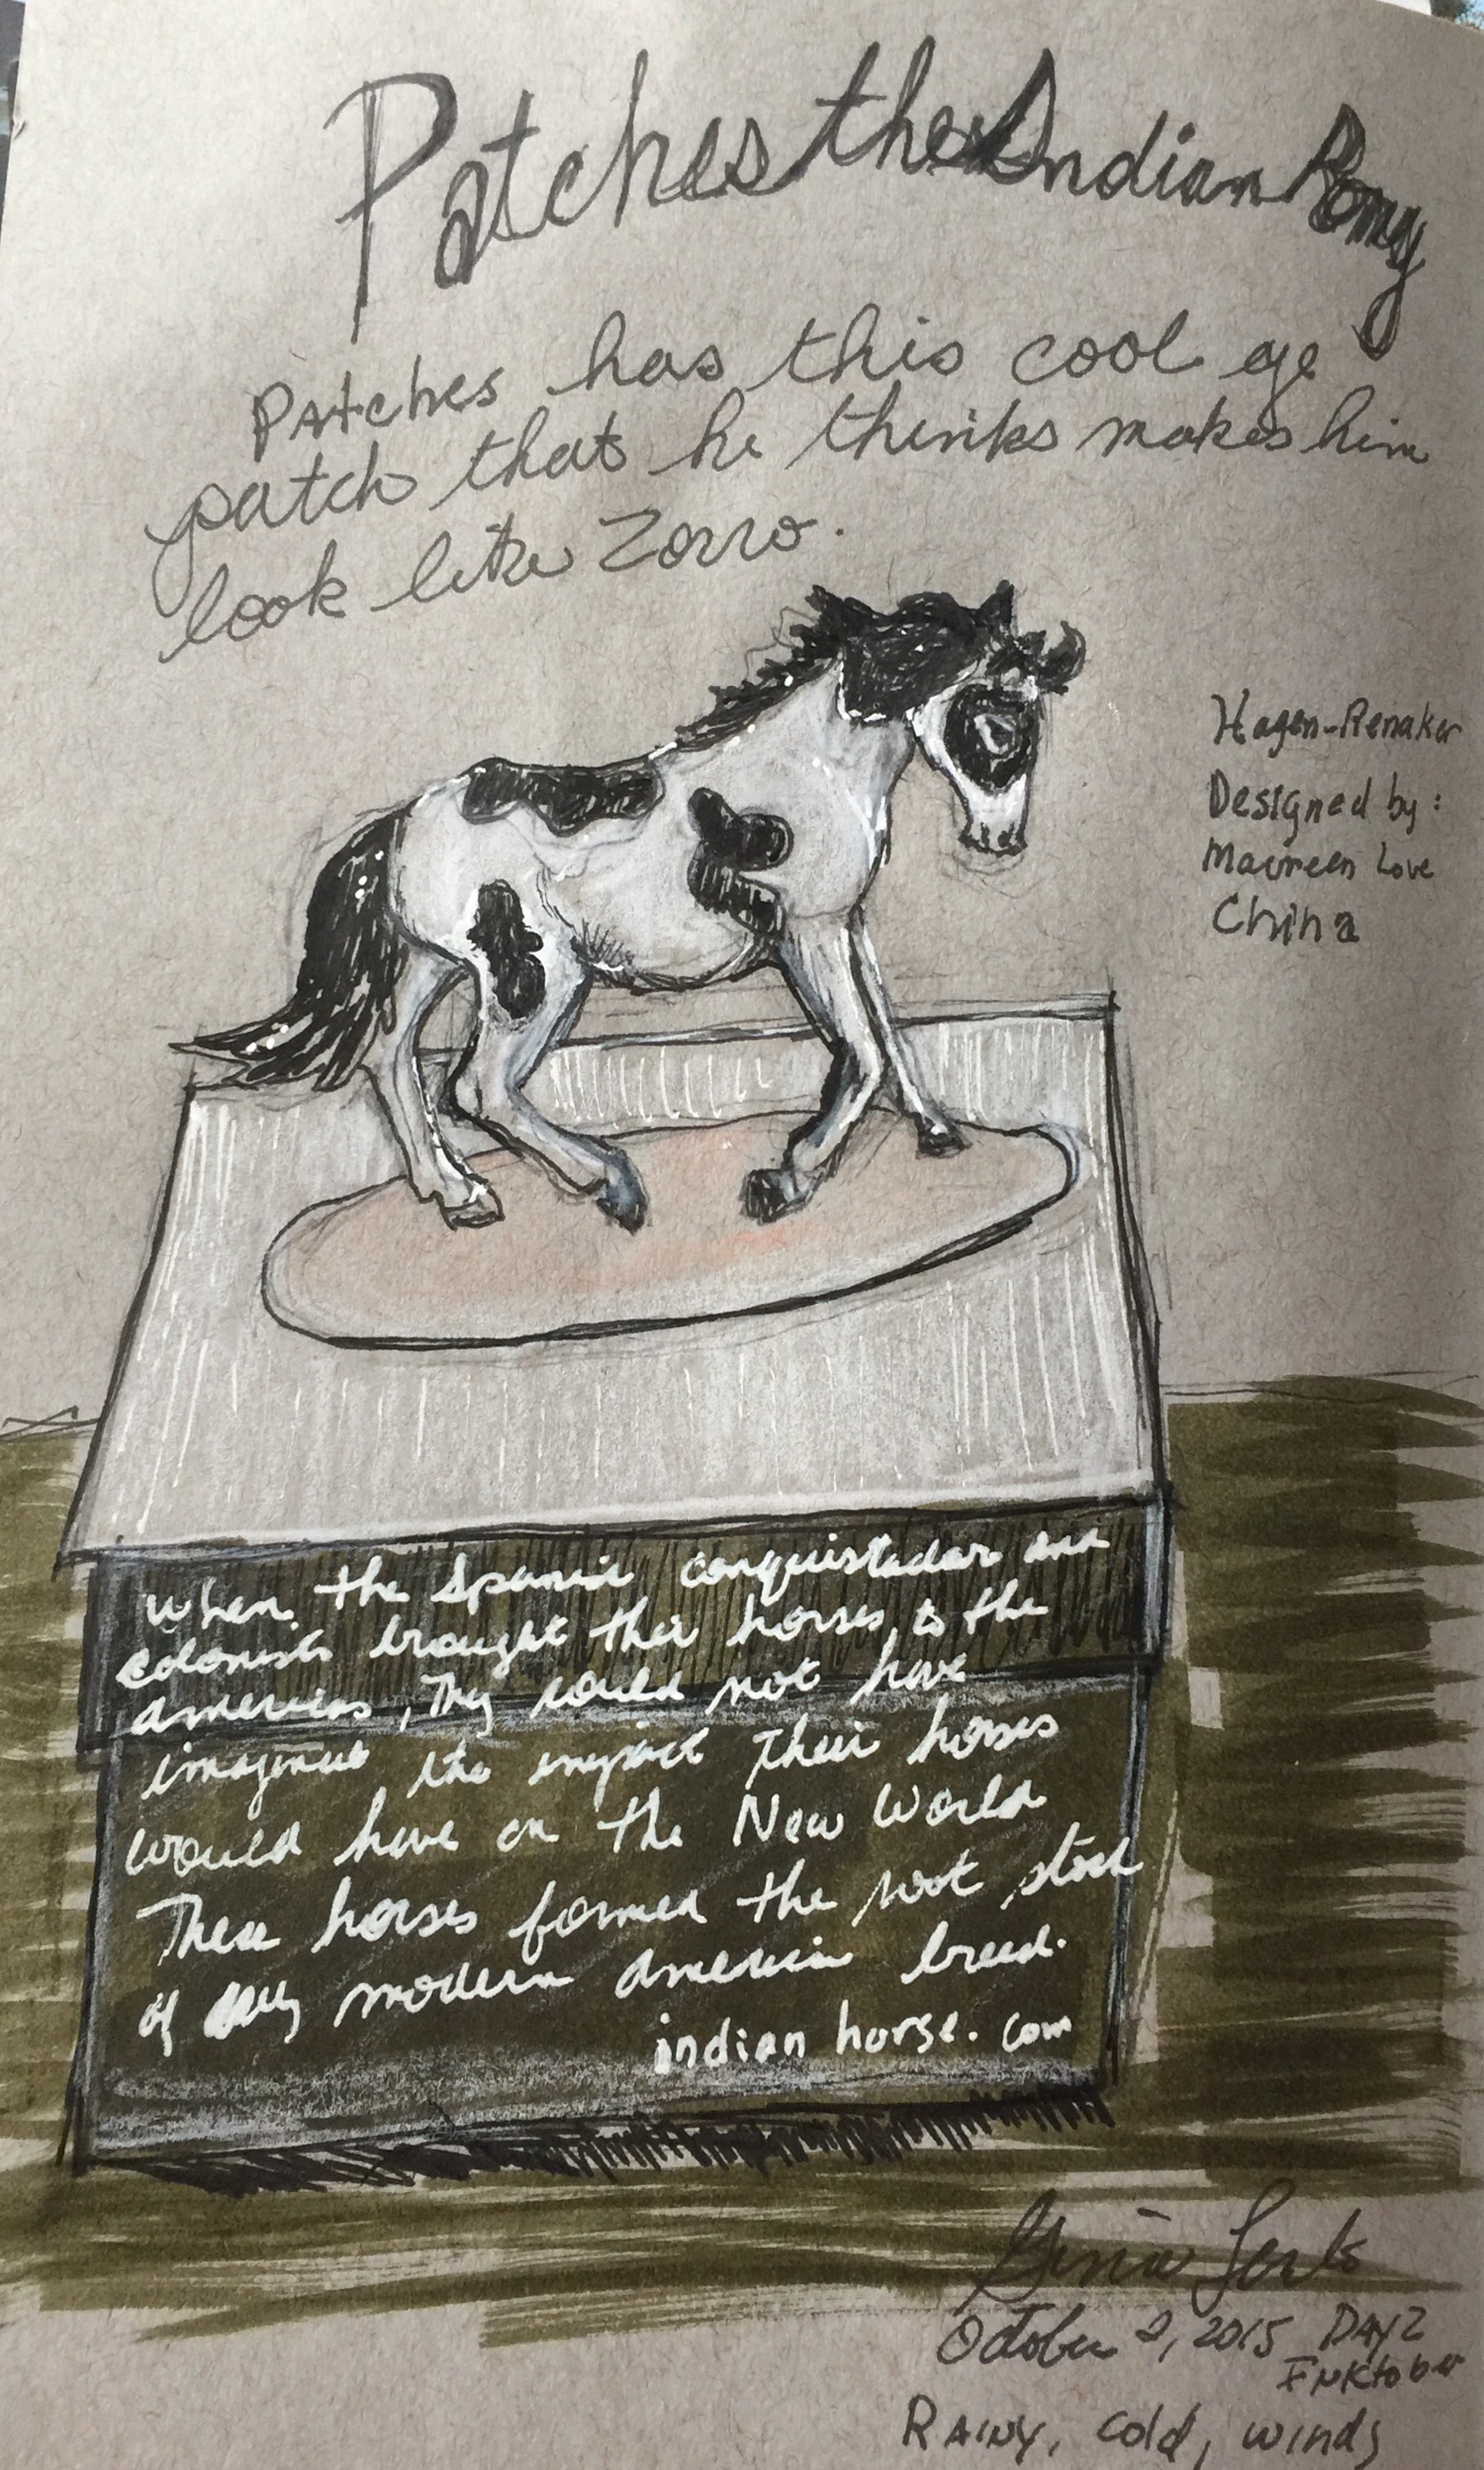 Patches the Indian Pony
Patches has this cool eye
patch that he thinks makes him
look like Zorro.
Hagen-Renaker
Designed by:
Maureen Love
China
When the Spanish conquistador and
colonists brought their horses to the
Americas, They could not have
imagined the impact their horses
would have on the New World
These horses formed the root stock
of many modern American breed.
indian horse. com
October 2, 2015 DAY 2
INKtober
RAINY, cold, windy